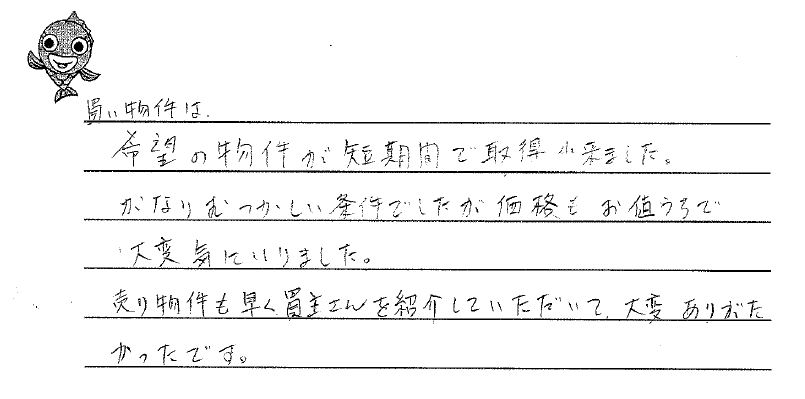 買い物件は、
希望の物件が短期間で取得出来ました。
かなりむつかしい条件でしたが価格もお値うちで
大変気にいりました。
売り物件も早く買主さんを紹介していただいて、大変ありがた
かったです。